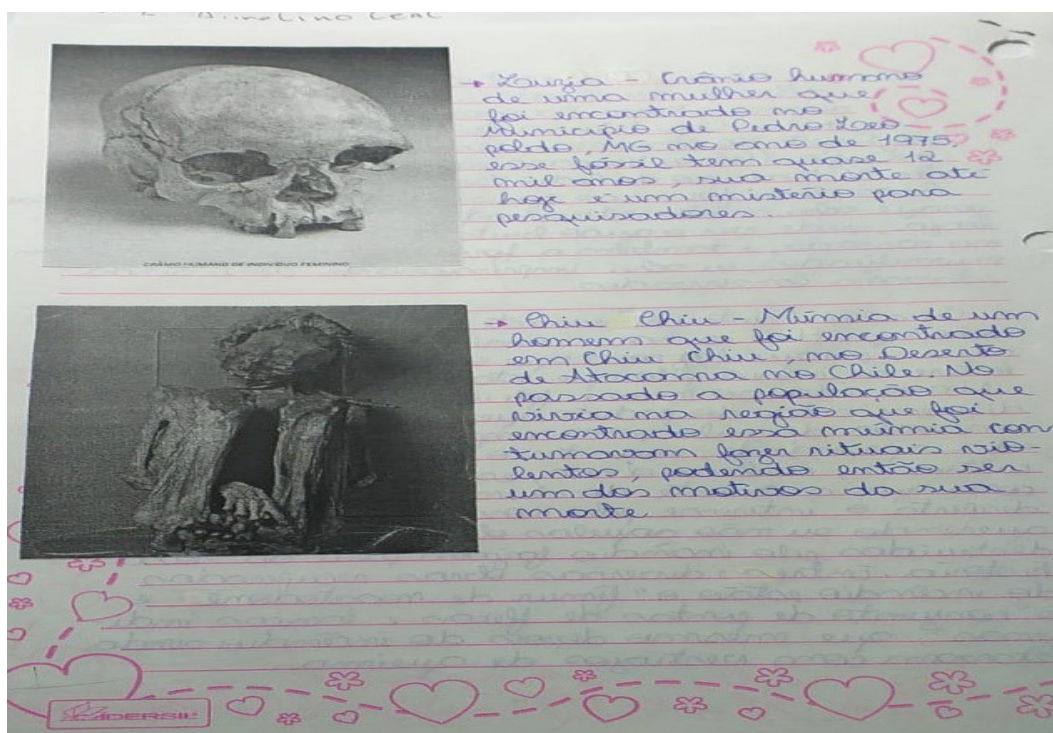 LEAL
→ Luzia - Crânio humano
de uma mulher que
foi encontrado no
Município de Pedro Leo-
poldo, MG no ano de 1975,
esse fóssil tem quase 12
mil anos, sua morte até
hoje é um mistério para
pesquisadores.
CRÂNIO HUMANO DE INDIVÍDUO FEMININO
→ Chiu Chiu - Múmia de um
homem que foi encontrado
em Chiu Chiu, no Deserto
de Atacama no Chile. No
passado a população que
vivia na região que foi
encontrado essa múmia con
tumavam fazer rituais vio-
lentos, podendo então ser
um dos motivos da sua
morte
CADERSIL